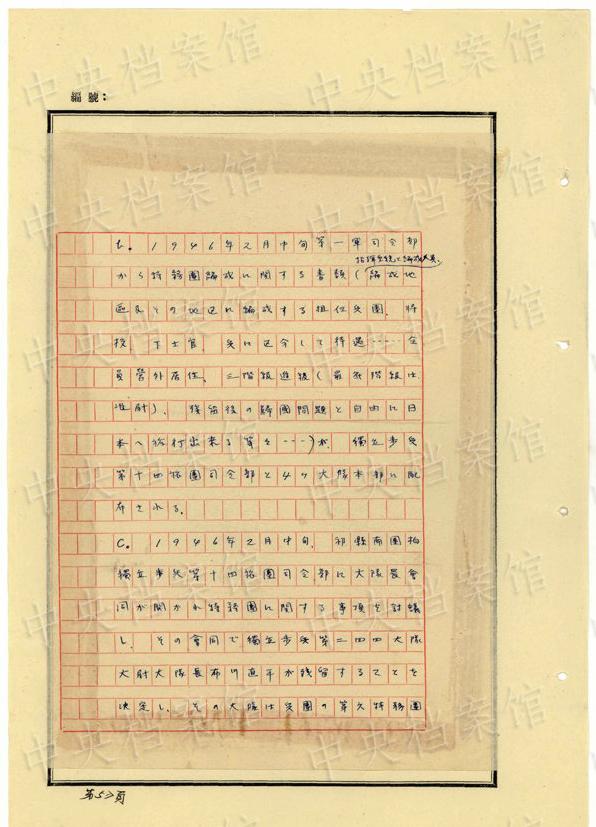 編號：
b. 1946年2月中旬第一軍司令部
指揮系統と編成人員、
から特務團編成に関する書類（編成地
区及その地区に編成する担任兵團、将
校、下士官、兵に区分して待遇……全
員営外居住、三階級進級（最於階級は
准尉）、残留後の帰國問題と自由に日
本へ旅行出来る等を……）が、独立歩兵
第十四旅團司令部と4ケ大隊本部に配
布される。
C. 1946年2月中旬、祁縣南團柏
独立歩兵第十四旅團司令部に大隊長會
同が開かれ特務團に関する事項を討議
し、その會同で独立歩兵第二四四大隊
大尉大隊長布川直平が残留することを
決定し、その大隊は兵團の第六特務團
第52頁
中央档案馆